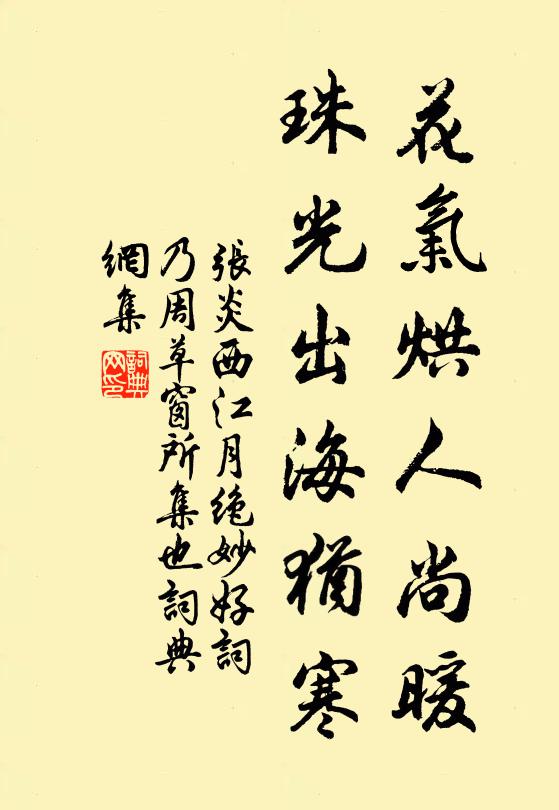 花氣烘人尚暖
珠光出海猶寒
張炎西江月絕妙好詞
乃周草窗所集也詞典
網集
詞典
网印